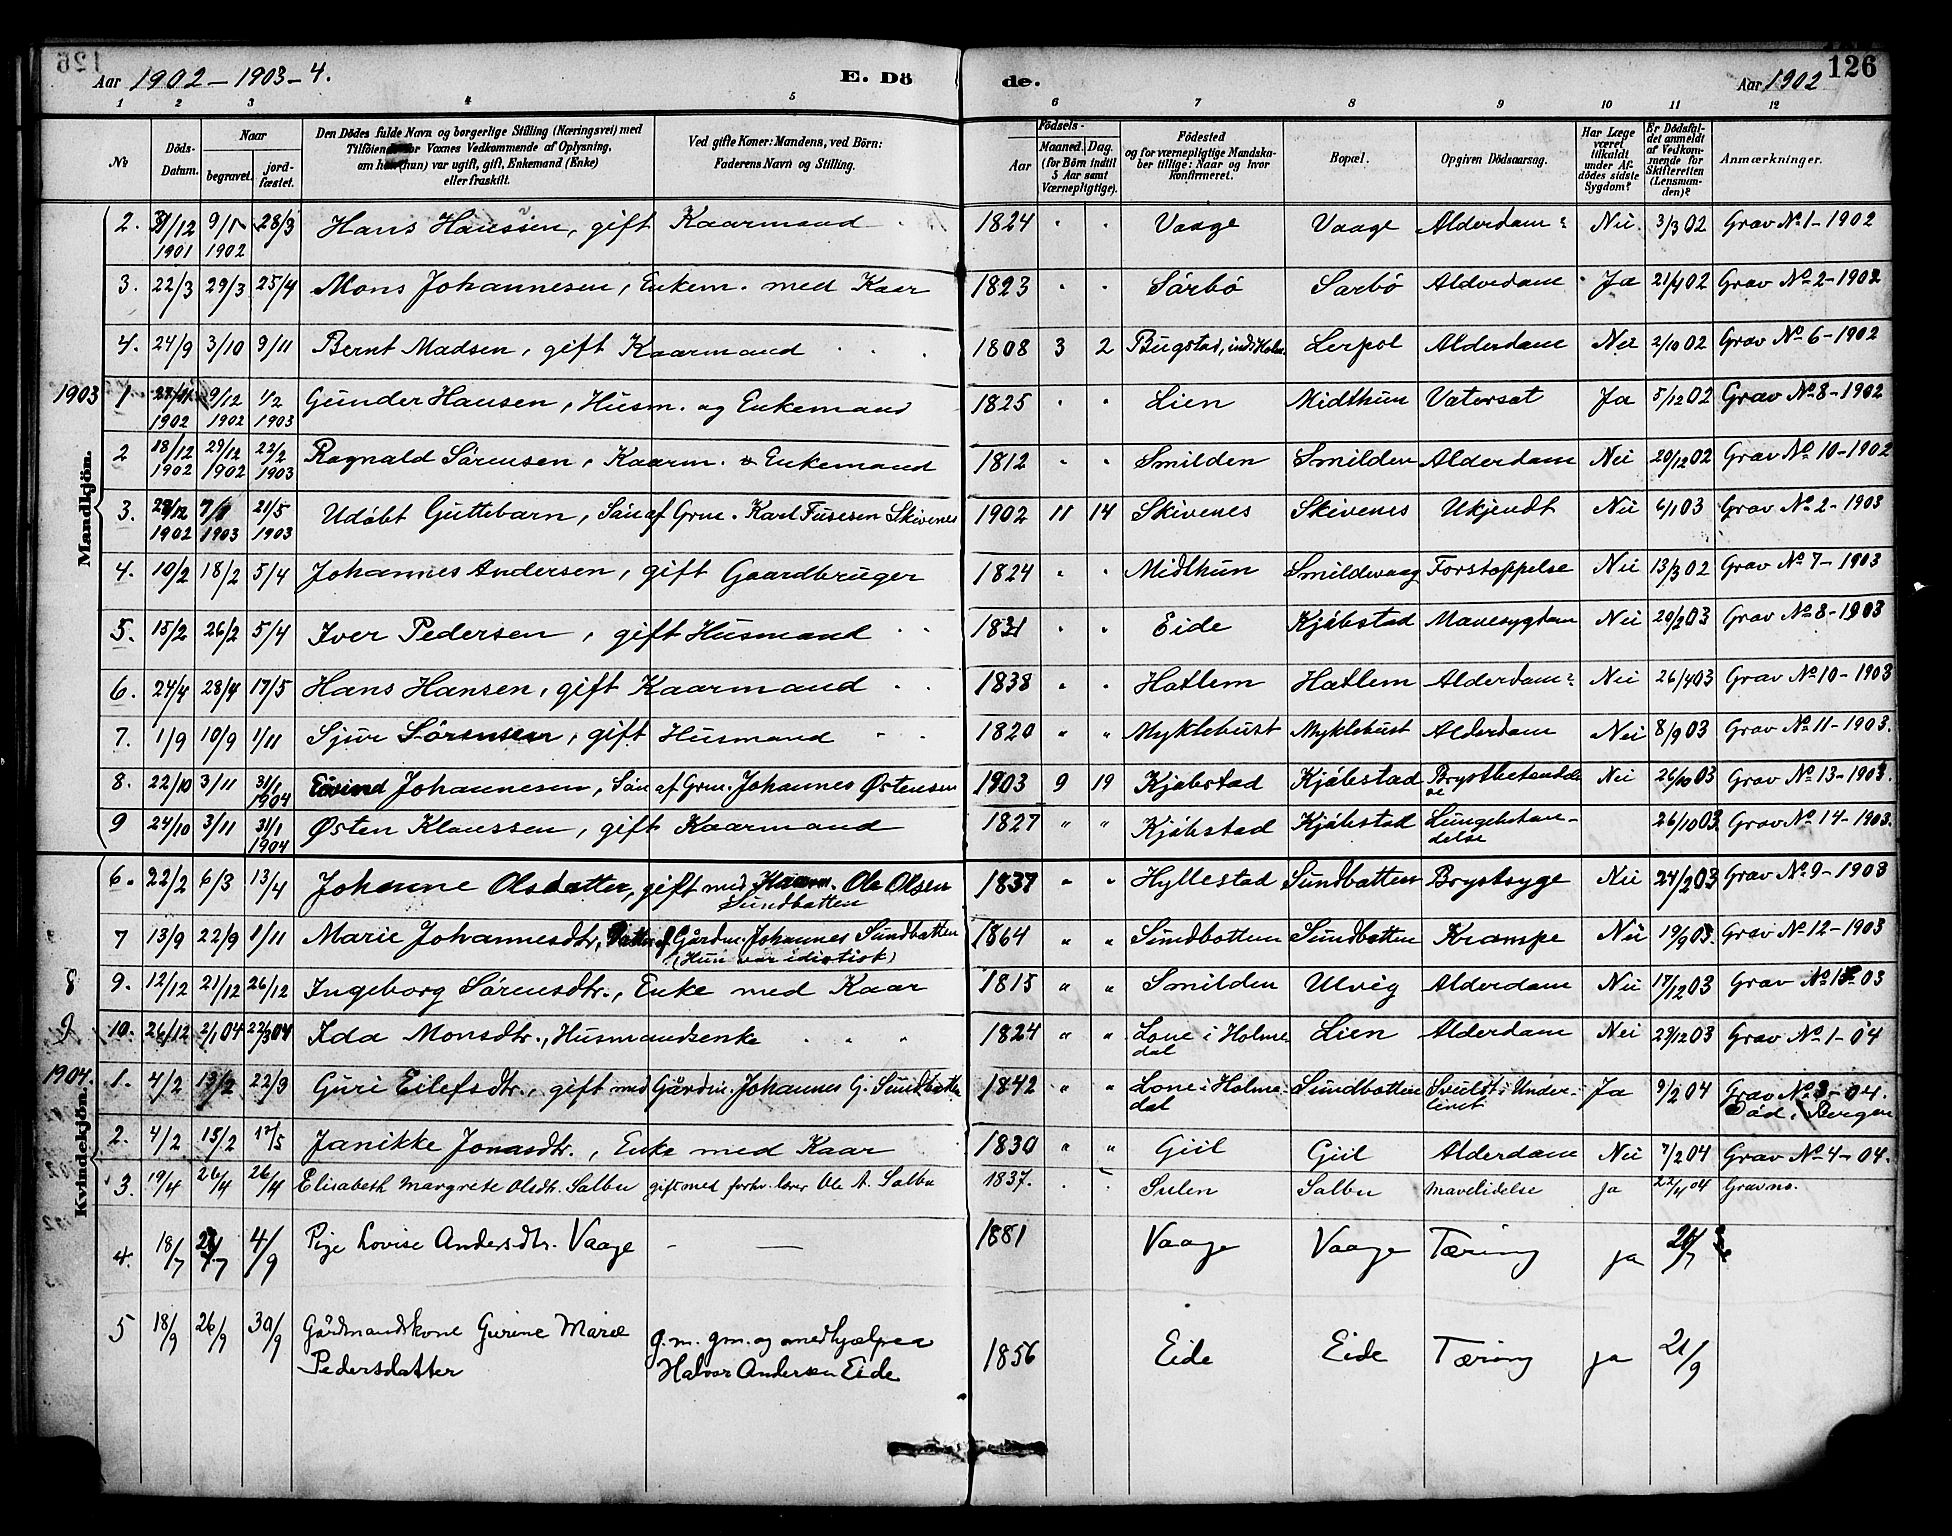 126
Aar 1902-1903-4.
E. Dö
de.
Aar 1902
1 2 3 4 5 6 7 8 9 10 11 12
No
Döds-Datum.
Naar
begravet.
jordfæstet.
Den Dödes fulde Navn og borgerlige Stilling (Næringsvei) med
Tilföiende for Voxnes Vedkommende af Oplysning,
om han (hun) var ugift, gift, Enkemand (Enke)
eller fraskilt.
Ved gifte Koner: Mandens, ved Börn:
Faderens Navn og Stilling.
Födsels-
Aar
Maaned. Dag.
(for Börn indtil
5 Aar samt
Værnepligtige).
Födested
og for værnepligtige Mandska-
ber tillige: Naar og hvor
konfirmeret.
Bopæl.
Opgiven Dödsaarsag.
Har Læge
været
tilkaldt
under Af-
dödes sidste
Sygdom?
Er Dödsfal-
det anmeldt
af Vedkom-
mende for
Skifteretten
(Lensman-
den)?
Anmærkninger.
Mandkjön.
2. 31/12 1901 9/1 1902 28/3 Hans Hanssen, gift Kaarmand 1824 Vaage Vaage Alderdom Nei 3/3 02 Grav No 1-1902
3. 22/3 29/3 25/4 Mons Johannesen, Enkem. med Kaar 1823 Sörbö Sörbö Alderdom Ja 21/4 02 Grav No 2-1902
4. 24/9 3/10 9/11 Bernt Madsen, gift Kaarmand 1808 3 2 Bugstad, indr Holm. Lerpol Alderdom Nei 2/10 02 Grav No 6-1902
1903 1. 1902 9/12 1902 1/2 1903 Gunder Hansen, Husm. og Enkemand 1825 Lien Midthun Vatersot Ja 5/12 02 Grav No 8-1902
2 18/12 1902 29/12 1902 22/2 1903 Ragnald Sörensen, Kaarm. & Enkemand 1812 Smilden Smilden Alderdom Nei 20/12 02 Grav No 10-1902
3. 1902 1903 21/5 1903 Udöbt Guttebarn, Sön af Grm. Karl Skivenes 1902 11 14 Skivenes Skivenes Ukjendt Nei 6/1 03 Grav No 2-1903
4. 10/2 18/2 5/4 Johannes Andersen, gift Gaardbruger 1824 Midthun Smildevaag Forstoppelse Nei 13/3 02 Grav No 7-1903
5. 15/2 26/2 5/4 Iver Pedersen, gift Husmand 1831 Eide Kjöbstad Mavesygdom Nei 20/2 03 Grav No 8-1903
6. 24/4 28/4 17/5 Hans Hansen, gift Kaarmand 1838 Hatlem Hatlem Alderdom Nei 26/4 03 Grav No 10-1903
7. 1/9 10/9 1/11 Sjur Sörensen, gift Husmand 1820 " " Myklebust Myklebust Alderdom Nei 8/9 03 Grav No 11-1903.
8. 22/10 3/11 31/1 1904 Eivind Johannesen, Sön af Grm. Johannes Østensen 1903 9 19 Kjöbstad Kjöbstad Brystbetændelse Nei 26/10 03 Grav No 13-1903.
9 24/10 3/11 31/1 1904 Østen Klaussen, gift Kaarmand 1827 " " Kjöbstad Kjöbstad Lungebetændelse 26/10 03 Grav No 14-1903.
Kvindekjön.
6. 22/2 6/3 13/4 Johanne Olsdatter, gift med Kaarm. Ole Olsen Sundbotten 1837 " " Hyllestad Sundbotten Brystsyge Nei 24/2 03 Grav No 9-1903
7 13/9 22/9 1/11 Marie Johannesdtr, Datter af Gårdm. Johannes Sundbotten (Hun var idiotisk) 1864 " " Sundbotten Sundbotten Krampe Nei 19/9 03. Grav No 12-1903
8 9. 12/12 21/12 26/12 Ingeborg Sörensdtr., Enke med Kaar 1815 " " Smilden Ulvig Alderdom Nei 17/12 03 Grav No 03
9 10. 26/12 2/1 04 22/3 04 Ida Monsdtr., Husmandsenke 1824 " " Lone i Holmedal Lien Alderdom Nei 29/12 03 Grav No 1-04
1904. 1. 4/2 13/2 22/3 Guri Eilefsdtr., gift med Gårdm. Johannes G. Sundbotten 1842 " " Lone i Holmedal Sundbotten Svulst i Underlivet Ja 9/2 04 Grav No 3-04. Död i Bergen
2. 4/2 15/2 17/5 Janikke Jonasdtr., Enke med Kaar 1830 " " Giil Giil Alderdom Nei 7/2 04 Grav No 4-04.
3. 19/4 26/4 26/4 Elisabeth Margrete Olsdtr. Salbu gift med forhv. lærer Ole A. Salbu 1837. Sulen Salbu Mavelidelse ja 22/4 04 Grav no.
4. 18/7 4/9 Pige Lovise Andersdtr. Vaage - - 1881 Vaage Vaage Tæring ja
5 18/9 26/9 30/9 Gårdmandskone Gurine Marie Pedersdatter g. m. gm. og medhjælper Halvor Andersen Eide 1856 Eide Eide Tæring ja 21/9